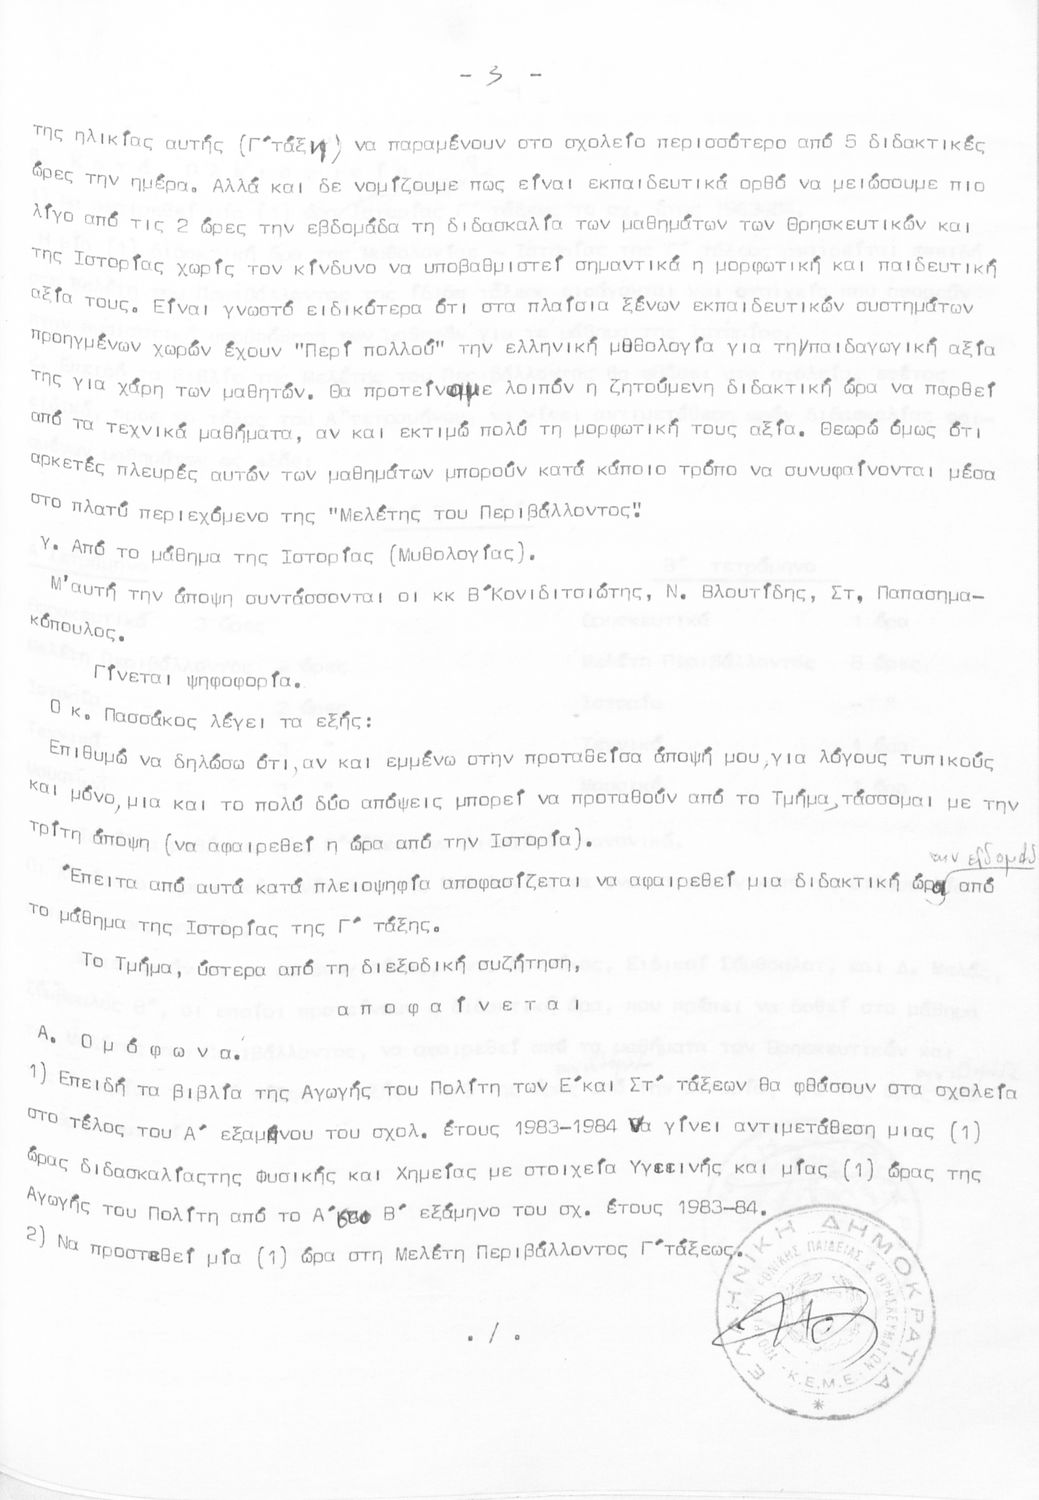 - 3 -
της ηλικίας αυτής (Γ΄τάξη) να παραμένουν στο σχολείο περισσότερο από 5 διδακτικές
ώρες την ημέρα. Αλλά και δε νομίζουμε πως είναι εκπαιδευτικά ορθό να μειώσουμε πιο
λίγο από τις 2 ώρες την εβδομάδα τη διδασκαλία των μαθημάτων των Θρησκευτικών και
της Ιστορίας χωρίς τον κίνδυνο να υποβαθμιστεί σημαντικά η μορφωτική και παιδευτική
αξία τους. Είναι γνωστό ειδικότερα ότι στα πλαίσια ξένων εκπαιδευτικών συστημάτων
προηγμένων χωρών έχουν "Περί πολλού" την ελληνική μυθολογία για τη/παιδαγωγική αξία
της για χάρη των μαθητών. Θα προτείναμε λοιπόν η ζητούμενη διδακτική ώρα να παρθεί
από τα τεχνικά μαθήματα, αν και εκτιμώ πολύ τη μορφωτική τους αξία. Θεωρώ όμως ότι
αρκετές πλευρές αυτών των μαθημάτων μπορούν κατά κάποιο τρόπο να συνυφαίνονται μέσα
στο πλατύ περιεχόμενο της "Μελέτης του Περιβάλλοντος".
γ. Από το μάθημα της Ιστορίας (Μυθολογίας).
Μ'αυτή την άποψη συντάσσονται οι κκ Β΄Κονιδιτσιώτης, Ν. Βλουτίδης, Στ, Παπασημα-
κόπουλος.
Γίνεται ψηφοφορία.
Ο κ. Πασσάκος λέγει τα εξής:
Επιθυμώ να δηλώσω ότι, αν και εμμένω στην προταθείσα άποψή μου, για λόγους τυπικούς
και μόνο, μια και το πολύ δύο απόψεις μπορεί να προταθούν από το Τμήμα, τάσσομαι με την
τρίτη άποψη (να αφαιρεθεί η ώρα από την Ιστορία).
την εβδομάδ
Έπειτα από αυτά κατά πλειοψηφία αποφασίζεται να αφαιρεθεί μια διδακτική ώρα από
το μάθημα της Ιστορίας της Γ΄ τάξης.
Το Τμήμα, ύστερα από τη διεξοδική συζήτηση,
α π ο φ α ί ν ε τ α ι
Α. Ο μ ό φ ω ν α.
1) Επειδή τα βιβλία της Αγωγής του Πολίτη των Ε΄και Στ΄ τάξεων θα φθάσουν στα σχολεία
στο τέλος του Α΄ εξαμήνου του σχολ. έτους 1983-1984 να γίνει αντιμετάθεση μιας (1)
ώρας διδασκαλίαςτης Φυσικής και Χημείας με στοιχεία Υγιεινής και μίας (1) ώρας της
Αγωγής του Πολίτη από το Α΄ στο Β΄ εξάμηνο του σχ. έτους 1983-84.
2) Να προστεθεί μία (1) ώρα στη Μελέτη Περιβάλλοντος Γ΄τάξεως.
. / .
ΕΛΛΗΝΙΚΗ ΔΗΜΟΚΡΑΤΙΑ
ΕΘΝΙΚΗΣ ΠΑΙΔΕΙΑΣ & ΘΡΗΣΚΕΥΜΑΤΩΝ
Κ.Ε.Μ.Ε.